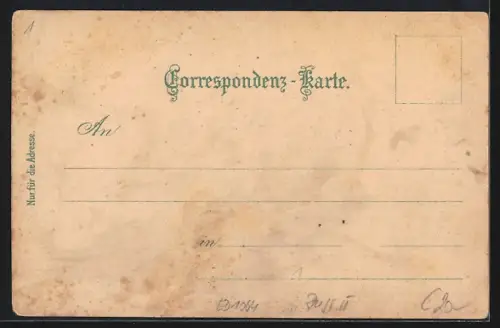 1
Correspondenz-Karte.
An
Nur für die Adresse.
in
1